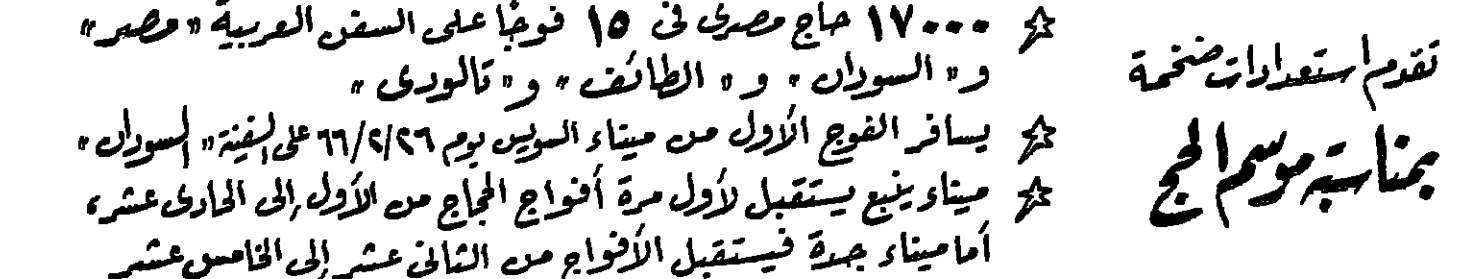 تقدم استعدادات ضخمة
بمناسبة موسم الحج
☆ ١٧٠٠٠ حاج مصرى فى ١٥ فوجًا على السفن العربية « مصر »
و « السودان » و « الطائف » و « تالودى »
☆ يسافر الفوج الأول من ميناء السويس يوم ٦٦/٢/٢٦ على السفينة « السودان »
☆ ميناء ينبع يستقبل لأول مرة أفواج الحجاج من الأول إلى الحادى عشر،
أما ميناء جدة فيستقبل الأفواج من الثانى عشر إلى الخامس عشر